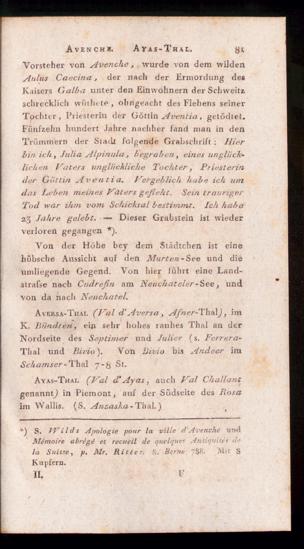 AVENCHE. AYAS-THAL. 81
Vorsteher von Avenche, wurde von dem wilden
Aulus Caecina, der nach der Ermordung des
Kaisers Galba unter den Einwohnern der Schweitz
schrecklich wüthete, ohngeacht des Flehens seiner
Tochter, Priesterin der Göttin Aventia, getödtet.
Funfzehn hundert Jahre nachher fand man in den
Trümmern der Stadt folgende Grabschrift: Hier
bin ich, Julia Alpinula, begraben, eines unglück-
lichen Vaters unglückliche Tochter, Priesterin
der Göttin Aventia. Vergeblich habe ich um
das Leben meines Vaters gefleht. Sein trauriger
Tod war ihm vom Schicksal bestimmt. Ich habe
23 Jahre gelebt. — Dieser Grabstein ist wieder
verloren gegangen *).
Von der Höhe bey dem Städtchen ist eine
hübsche Aussicht auf den Murten-See und die
umliegende Gegend. Von hier führt eine Land-
strafse nach Cudrefin am Neuchateler-See, und
von da nach Neuchatel.
AVERSA-THAL (Val d'Aversa, Afner-Thal), im
K. Bündten, ein sehr hohes rauhes Thal an der
Nordseite des Septimer und Julier (s. Ferrera-
Thal und Bivio). Von Bivio bis Andeer im
Schamser-Thal 7-8 St.
AYAS-THAL (Val d'Ayas, auch Val Challant
genannt) in Piemont, auf der Südseite des Rosa
im Wallis. (S. Anzaska-Thal.)
*) S. Wilds Apologie pour la ville d'Avenche und
Mémoire abrégé et recueil de quelques Antiquités de
la Suisse, p. Mr. Ritter. 8. Berne 788. Mit 8
Kupfern.
II. F